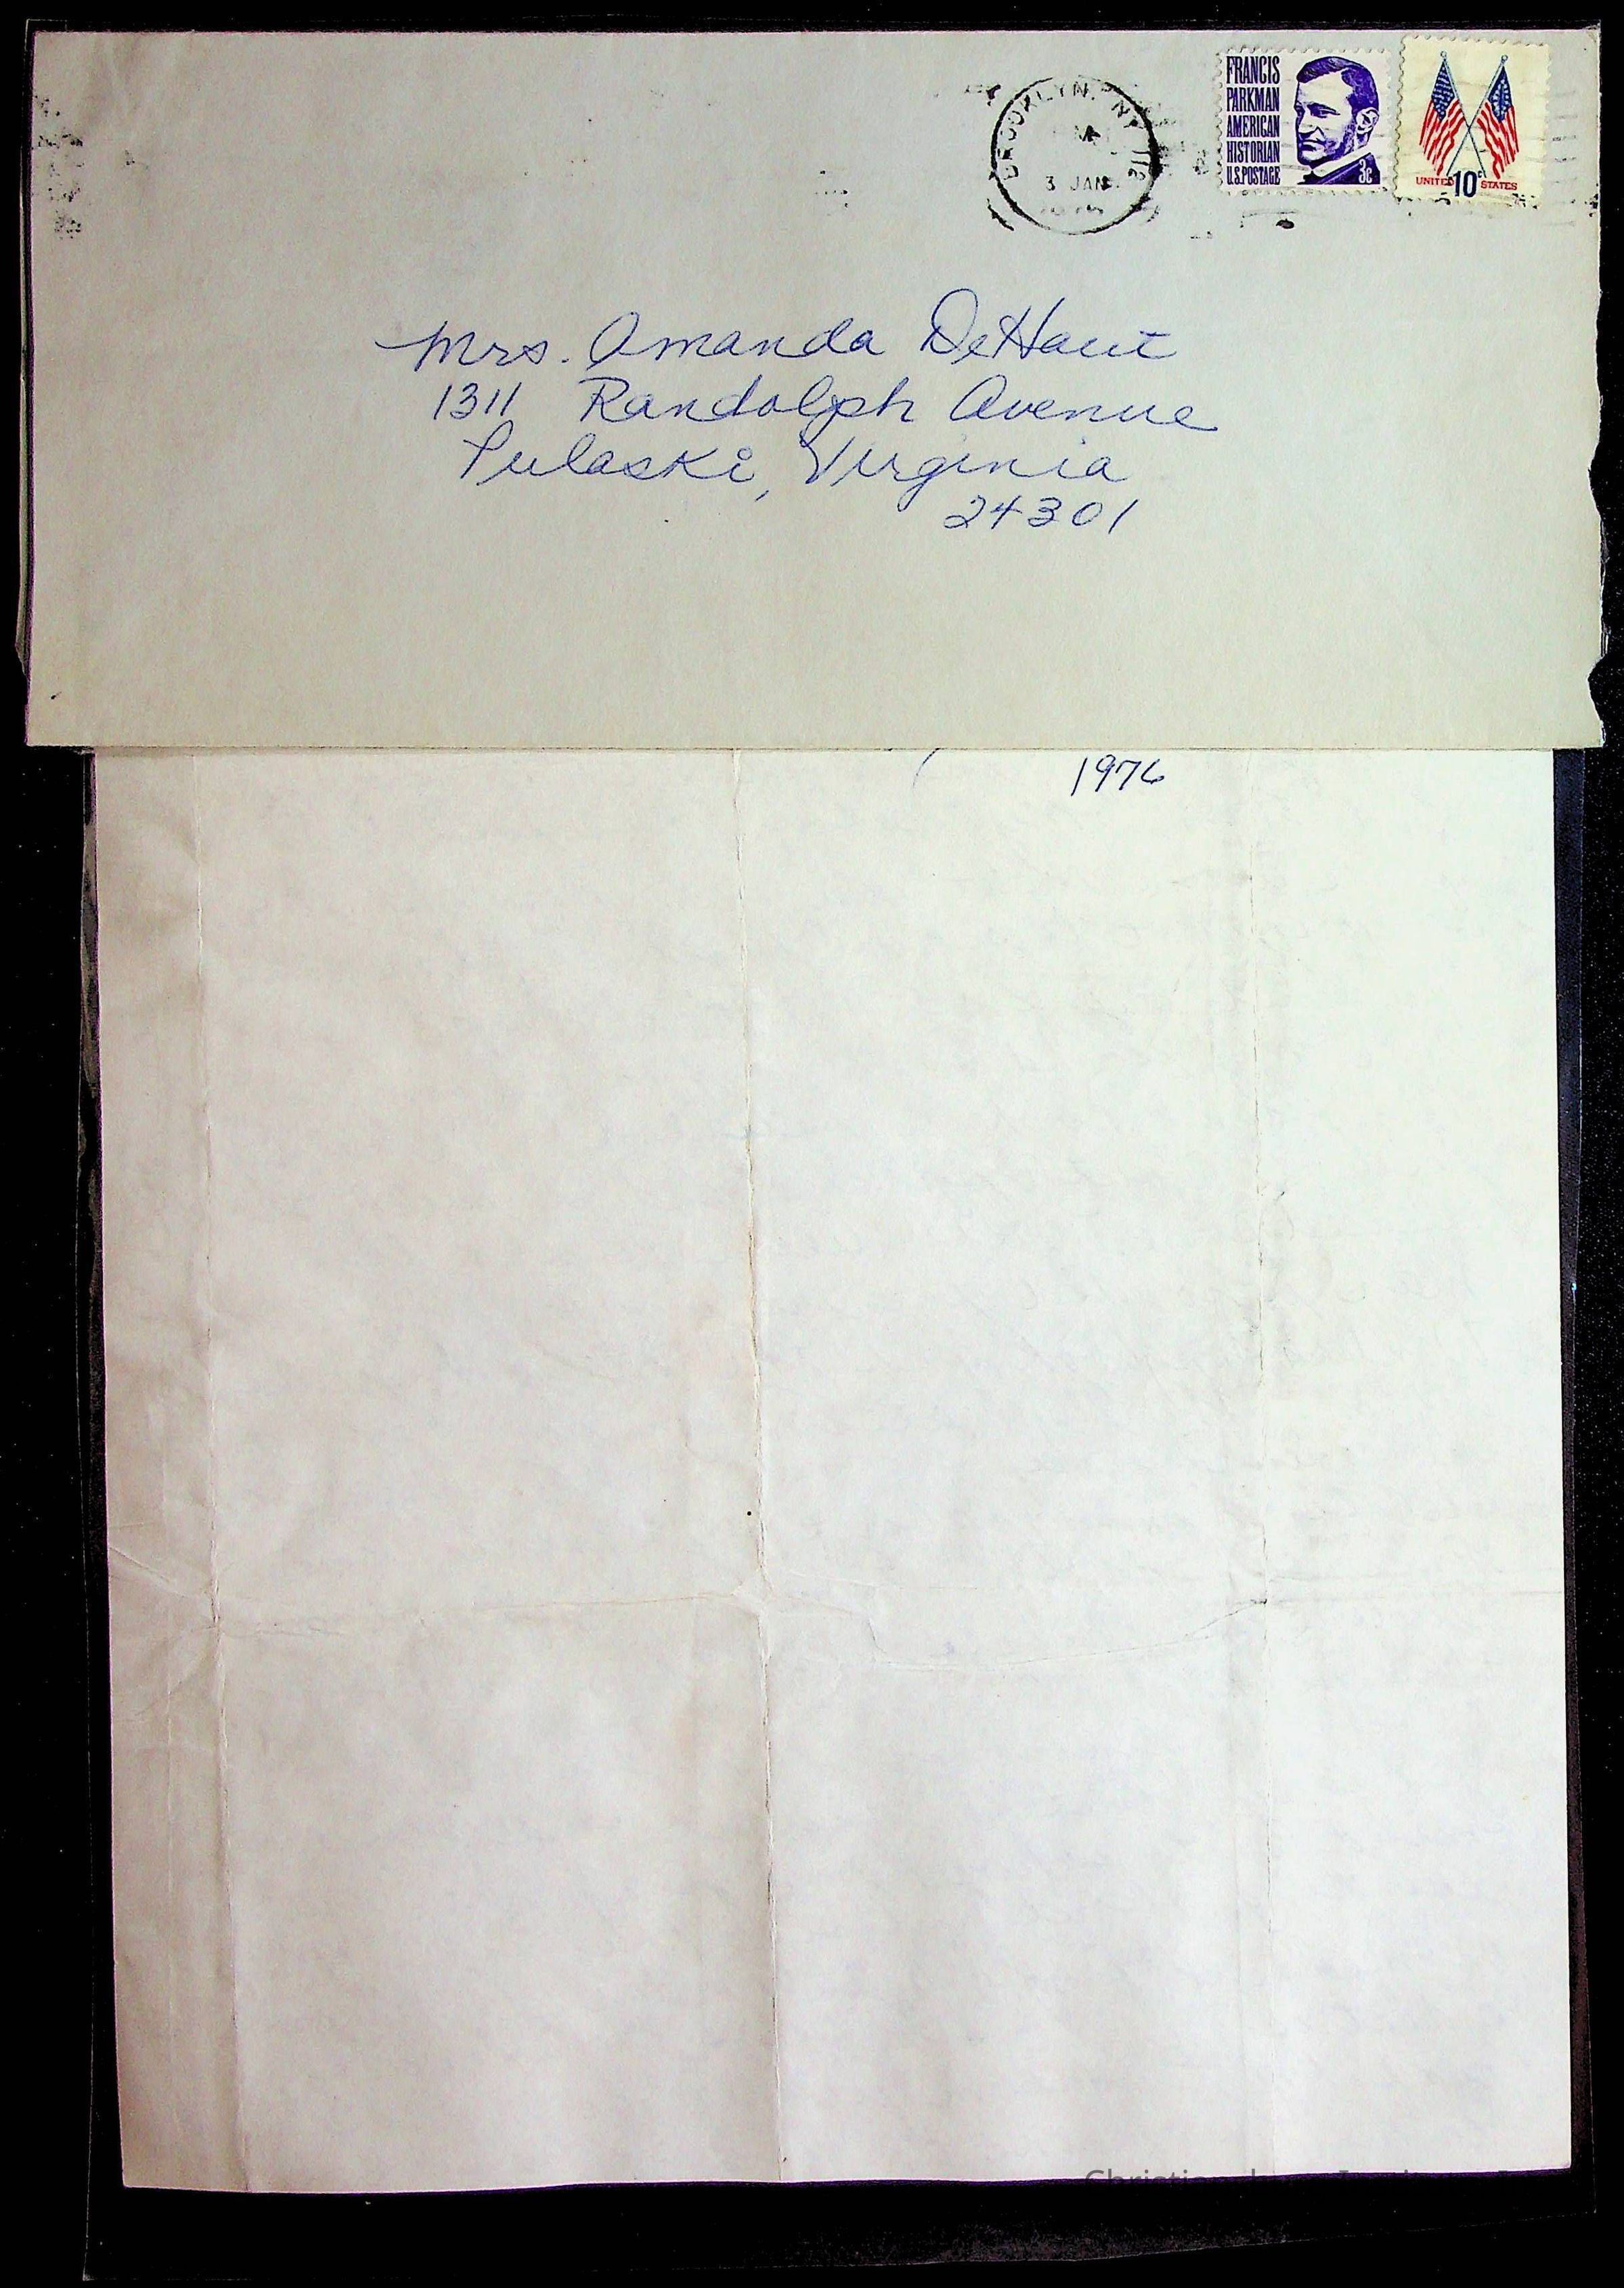 BROOKLYN, NY 112
3 JAN
FRANCIS
PARKMAN
AMERICAN
HISTORIAN
U.S.POSTAGE
3c
UNITED 10c STATES
Mrs. Amanda DeHaut
1311 Randolph Avenue
Pulaski, Virginia
24301
1976